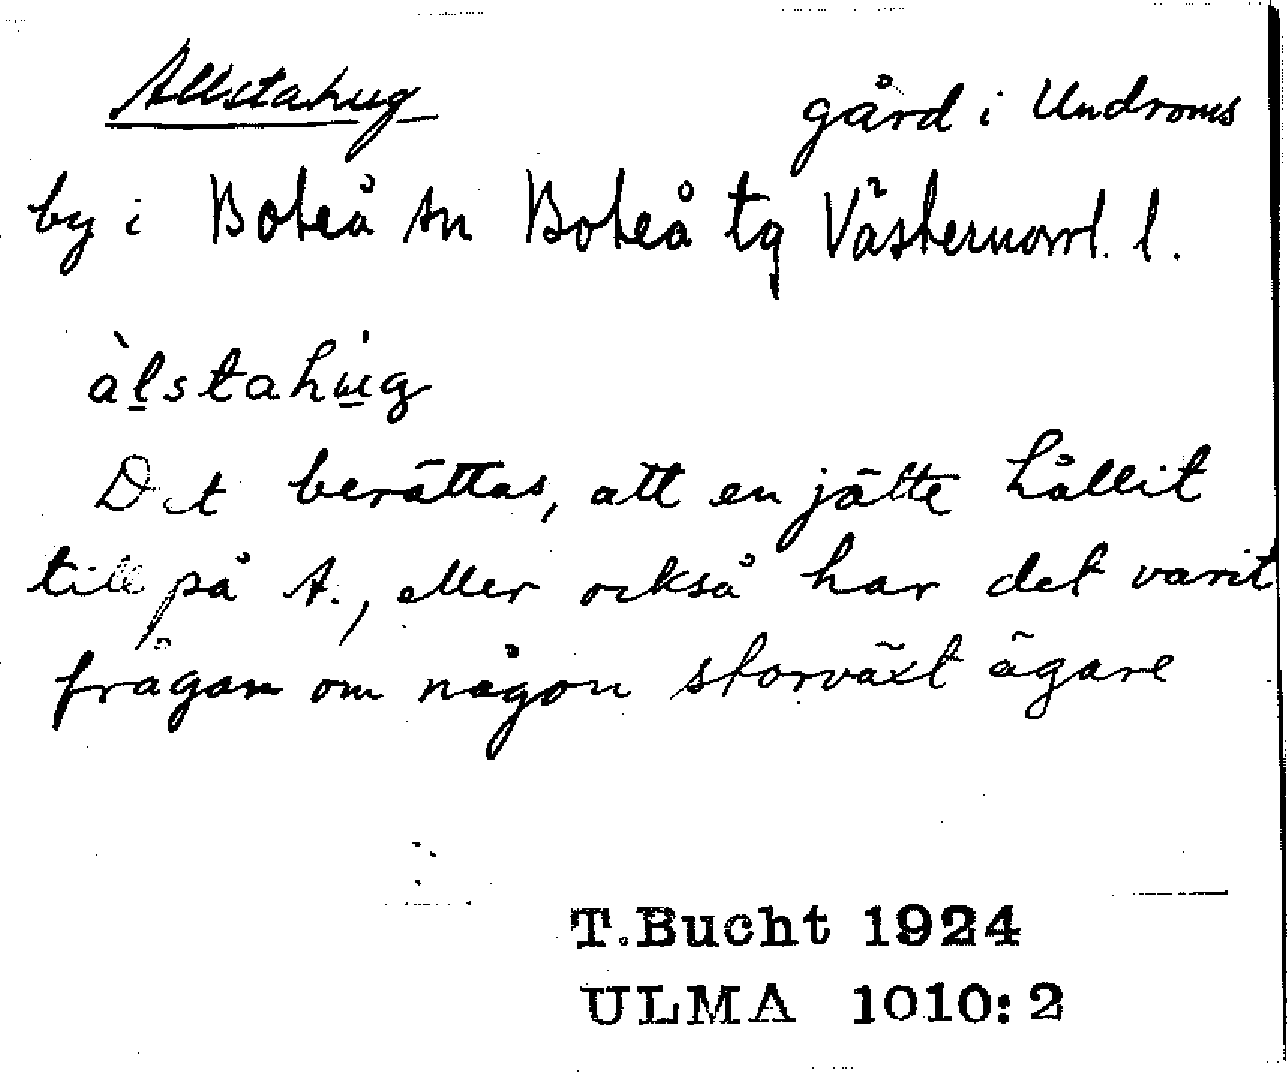 Allstahug gård i Undroms
by i Boteå sn Boteå tg Västernorrl. l.
àlstahug
Det berättas, att en jätte hållit
till på A., eller också har det varit
frågan om någon storväxt ägare
T.Bucht 1924
ULMA 1010:2